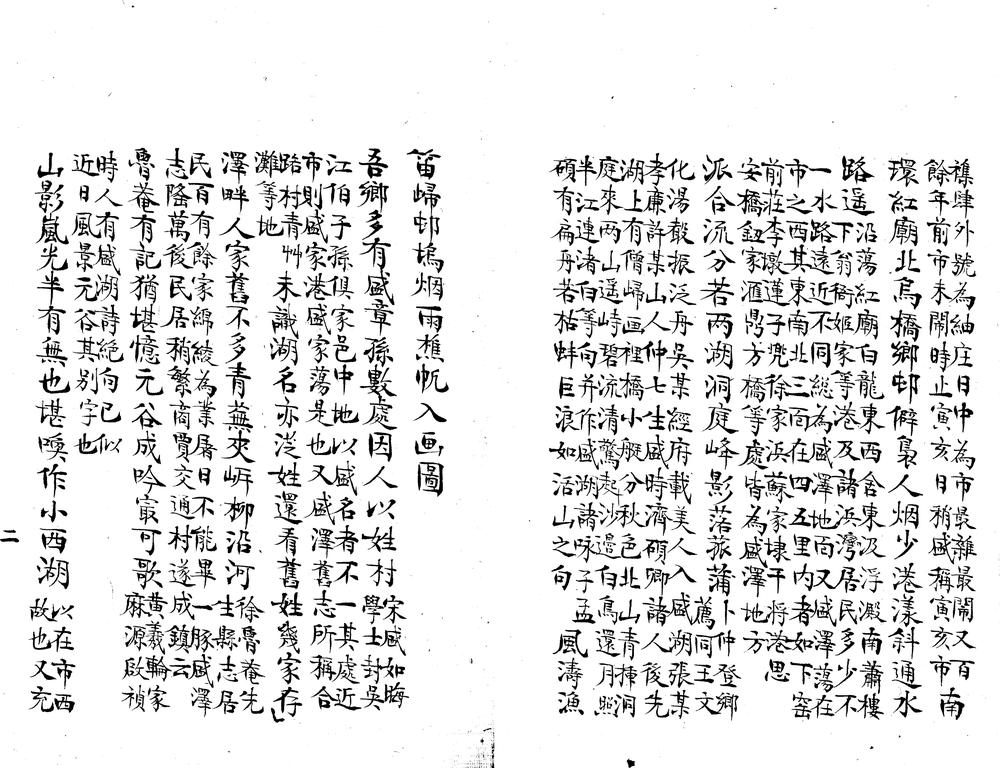 襍肆外號為紬庄日中為市最雜最閙又百
餘年前市未閙時止寅亥日稍盛稱寅亥市南
環紅廟北烏橋鄉邨僻裊人烟少港漾斜通水
路遥沿蕩紅廟白龍東西舍東汲浮澱南蕭樓
下翁衖姬家等港及諸浜灣居民多少不
一水路遠近不同總為盛澤地面又盛澤蕩在
市之西其東南北三面在四五里内者如下窑
前莊李墩蓮子兠徐家浜蘇家埭干将港思
安橋鈕家滙鼎方橋等處皆為盛澤地方
派合流分若两湖洞庭峰影落菰蒲卜仲登鄉
薦同王文
化湯㲄振泛舟吳某經府載美人入盛湖張某
孝廉許某山人仲七生盛時濟碩卿諸人後先
湖上有僧歸画裡橋小艇分秋色北山青揷洞
庭來两山遥峙碧流清驚起沙邊白鳥還月照
半江連渚白等向并作盛湖諸咏子孟
碩有扁舟若枯蚌巨浪如活山之句風濤漁
笛歸邨塢烟雨樵帆入画圖
吾鄉多有盛章孫數處因人以姓村宋盛如晦
學士封吳
江伯子孫俱家邑中地以盛名者不一其處近
市則盛家港盛家蕩是也又盛澤舊志所稱合
路村青艸
灘等地未識湖名亦從姓還看舊姓幾家存
澤畔人家舊不多青蕪夾岍柳沿河徐魯菴先
生縣志居
民百有餘家綿綾為業屠日不能畢一豚盛澤
志隆萬後民居稍繁商賈交通村遂成鎮云
魯菴有記猶堪憶元谷成吟寂可歌黄羲輪家
麻源啟禎
時人有盛湖詩絕句已似
近日風景元谷其别字也
山影嵐光半有無也堪喚作小西湖以在市西
故也又充
二